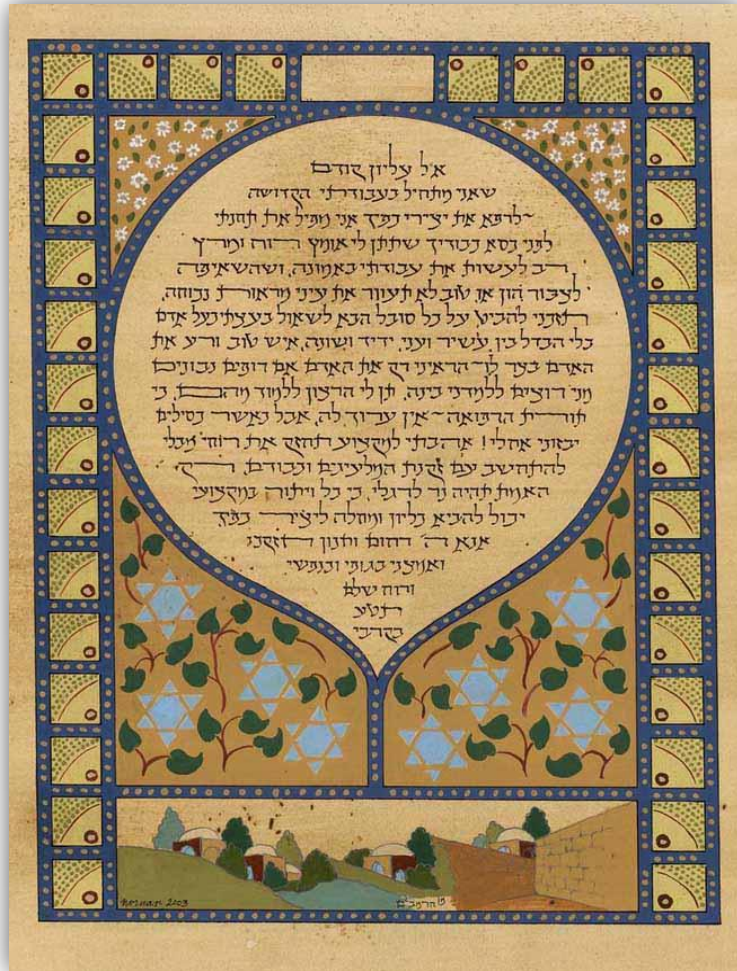 א'ל עליון קודם
שאני מתחיל בעבודתי הקדושה
לרפא את יצירי כפיך אני מפיל את תחנתי
לפני כסא כבודיך שתתן לי אומץ רוח ומרץ
רב לעשות את עבודתי באמונה, ושהשאיפה
לצבור הון או טוב לא תעוור את עיני מראות נכוחה,
תזכני להביט על כל סובל הבא לשאול בעצתי כעל אדם
בלי הבדל בין עשיר ועני, ידיד ושונה, איש טוב ורע את
האדם בצר לו הראיני רק את האדם אם רופים נבונים
מני רוצים ללמדני בינה, תן לי הרצון ללמוד מהם, כי
תורת הרפואה אין ערוך לה, אבל כאשר כסילים
יבזוני אחלי! אהבתי למקצוע תחזק את רוחי מבלי
להתחשב עם זקנת המלעיגים וכבודם, רק
האמת תהיה נר לרגלי, כי כל ויתור במקצועי
יכול להביא כליון ומחלה ליציר כפיך
אנא ה' רחום וחנון חזקני
ואמצני בגופי ובנפשי
ורוח שלם
תטע
בקרבי
2003